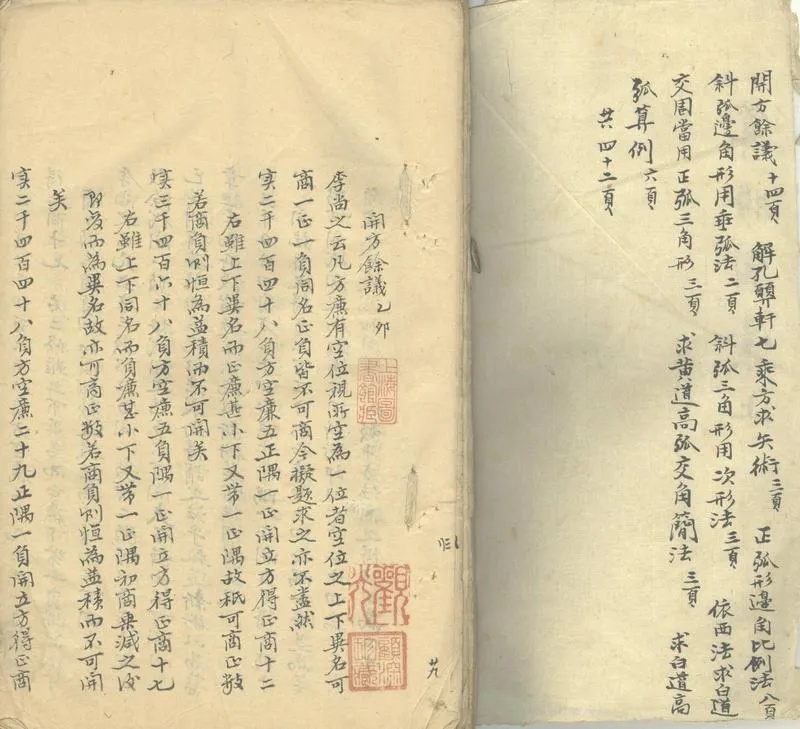 開方餘議十四頁　解孔顨軒七乘方求矢術三頁　正弧形邊角比例法八頁
斜弧邊角形用垂弧法二頁　斜弧三角形用次形法三頁　依西法求白道
交周當用正弧三角形三頁　求黄道高弧交角簡法三頁　求白道高
弧算例六頁
共四十二頁
開方餘議 乙卯
李尚之云凡方廉有空位視所空為一位者空位之上下異名可
商一正一負同名正負皆不可商今擬題求之亦不盡然
實二千四百四十八負方空廉五正隅一正開立方得正商十二
右雖上下異名而正廉甚小下又带一正隅故祇可商正数
若商負則恒為益積而不可開矣
實三千四百六十八負方空廉五負隅一正開立方得正商十七
右雖上下同名而負廉甚小下又带一正隅初商乘減之後
即变而為異名故亦可商正数若商負則恒為益積而不可開
矣
實二千四百四十八負方空廉二十九正隅一負開立方得正商
上海圖書館藏